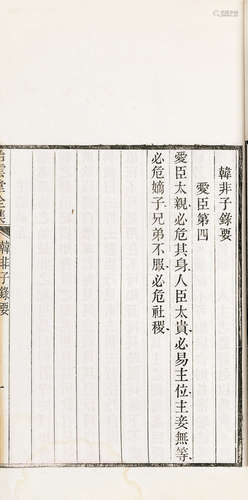 韓非子錄要
愛臣第四
愛臣太親必危其身人臣太貴必易主位主妾無等
必危嫡子兄弟不服必危社稷
韓非子錄要
一